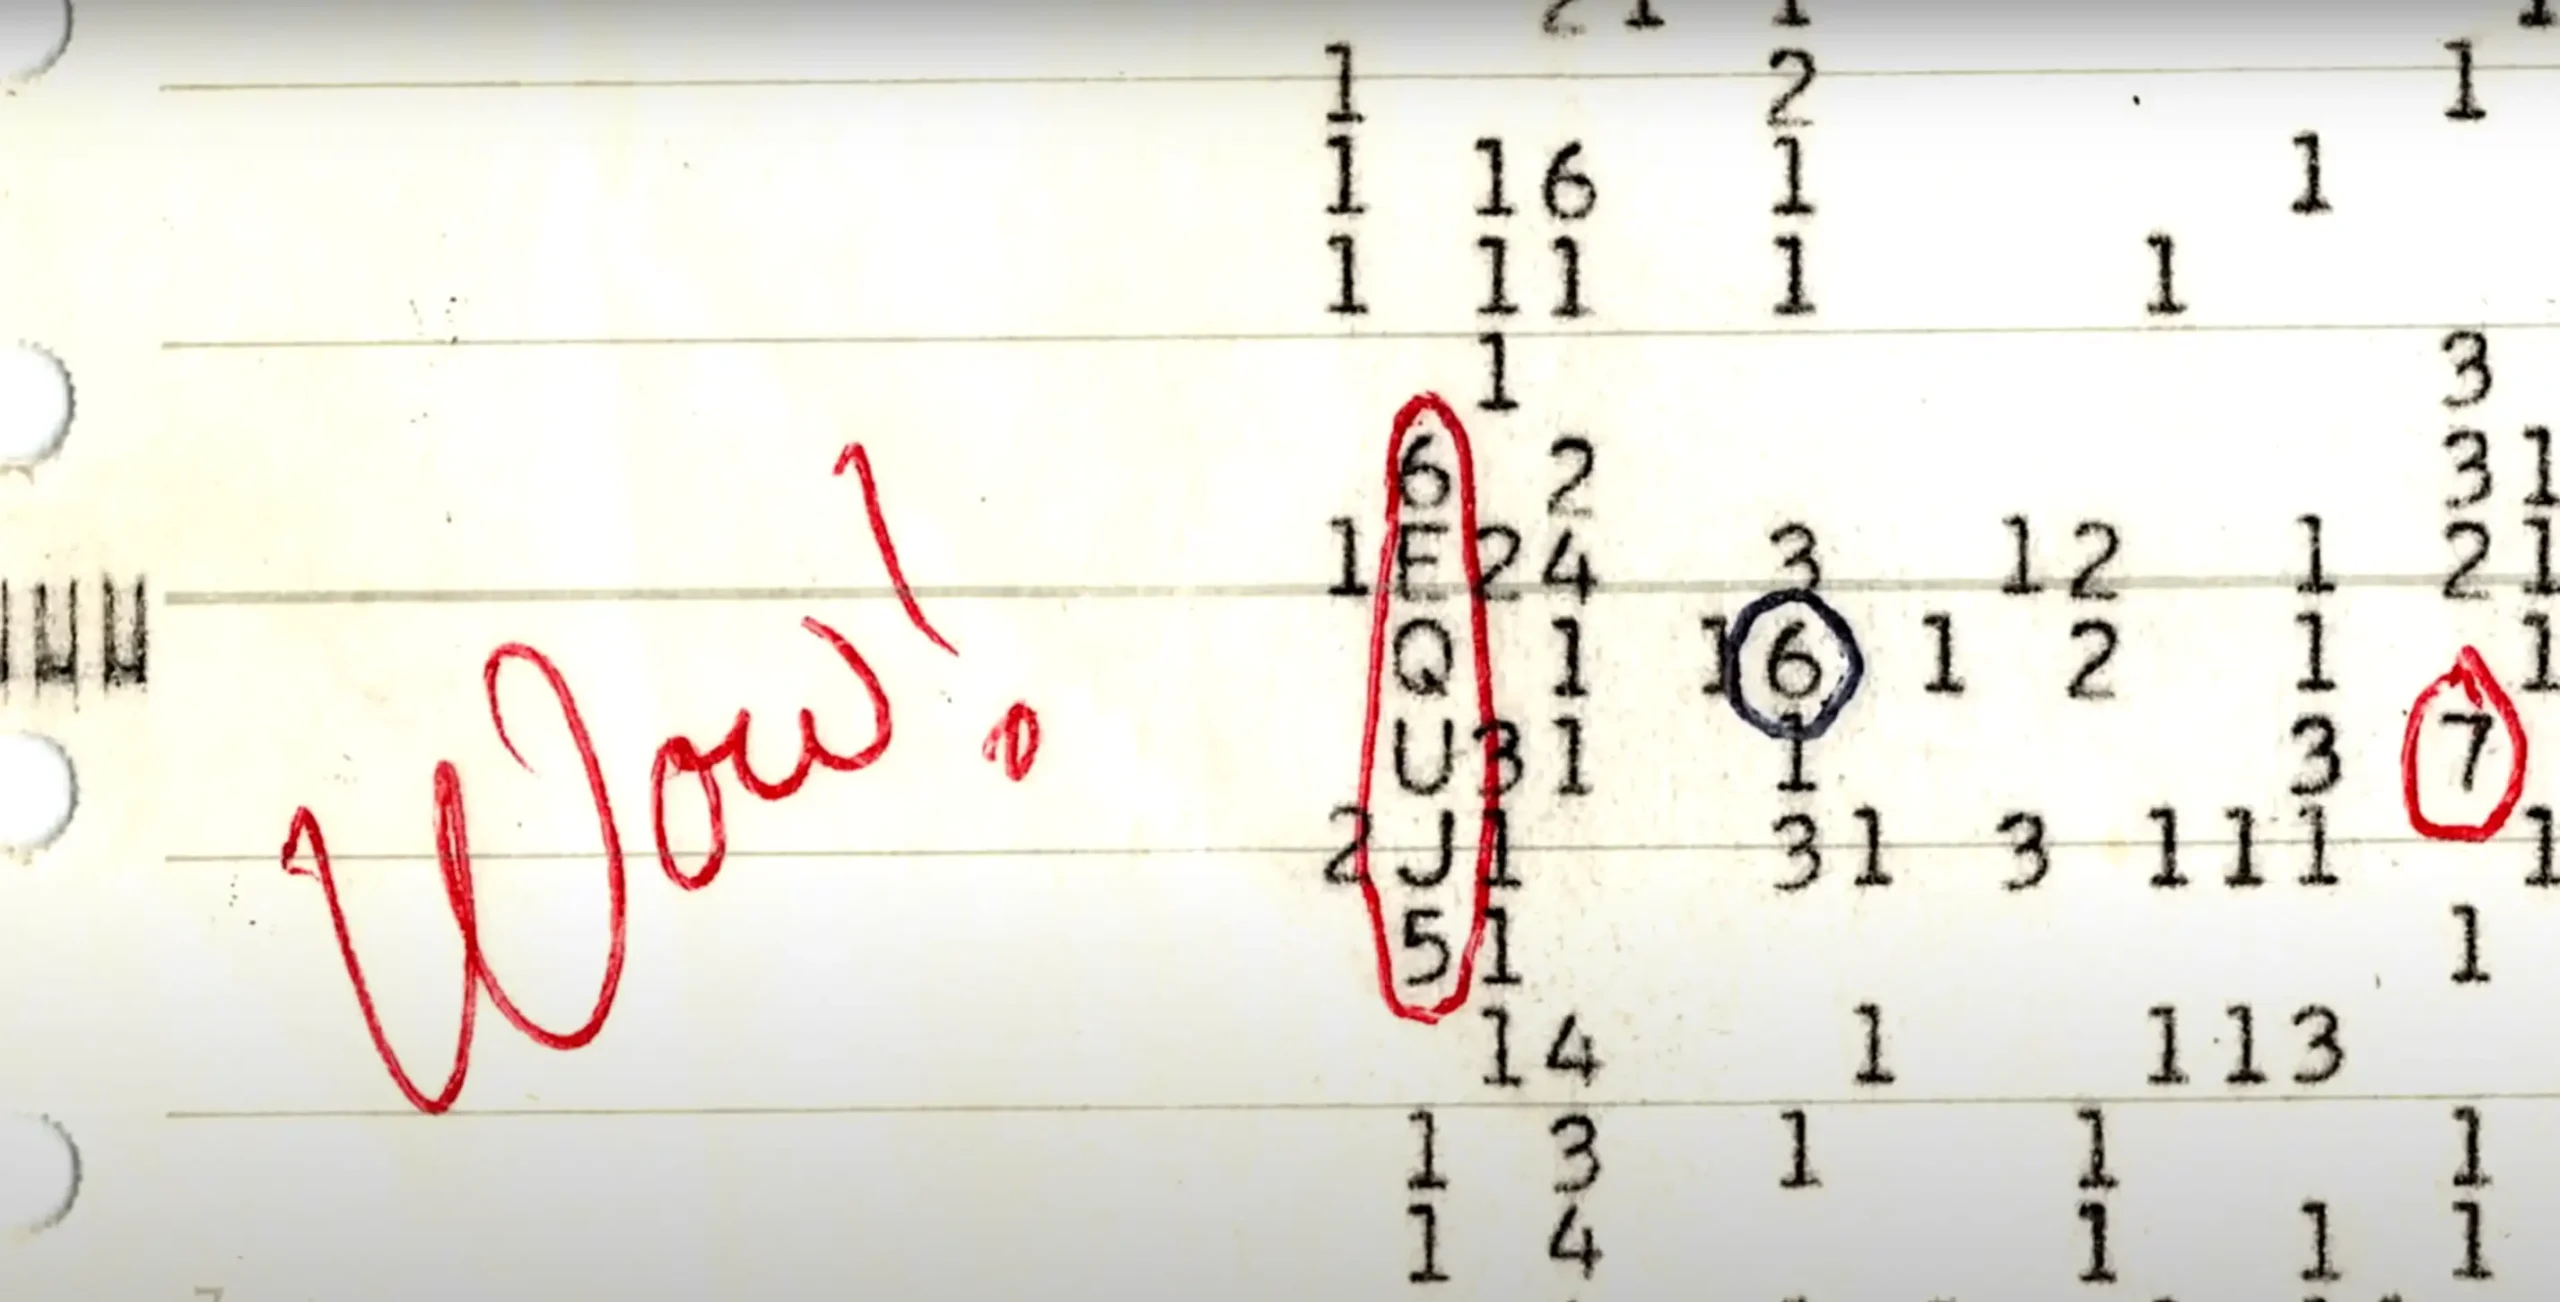 1 2 1
1 1 6 1 1
1 1 1 1 1
1 3
6 2 3 1
1 E 2 4 3 1 2 1 2 1
Wow!
Q 1 1 6 1 2 1 1
U 3 1 1 3 7
2 J 1 3 1 3 1 1 1 1
5 1 1
1 4 1 1 1 3
1 3 1 1 1
1 4 1 1 1